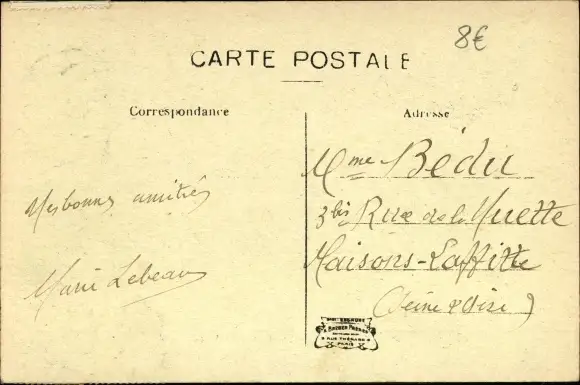 8€
CARTE POSTALE
Correspondance
Adresse
Mes bonnes amitiés
Marie Lebeau
Mme Bédu
3bis Rue de la Muette
Maisons-Laffitte
(Seine & Oise)
9 RUE THÉNARD 9
PARIS